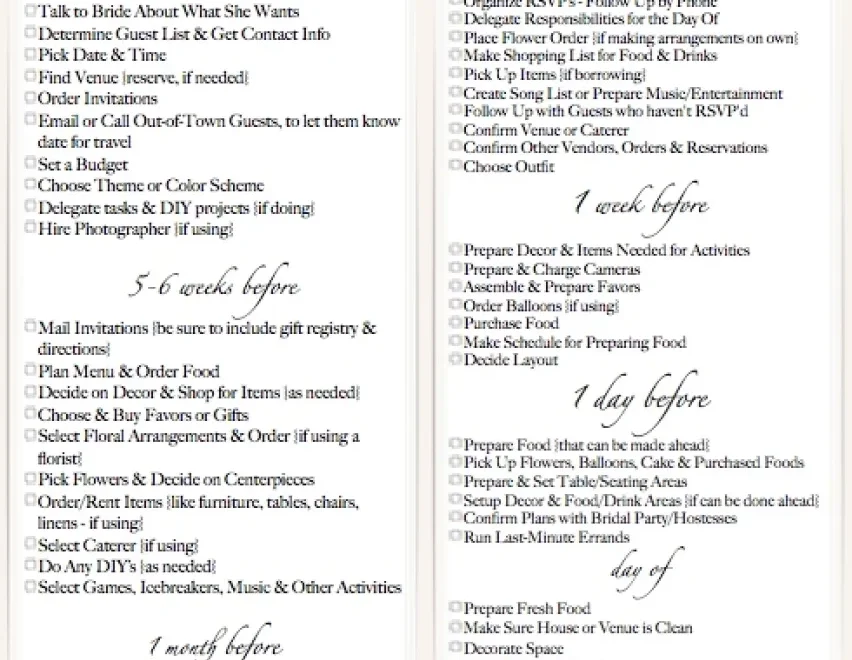 Talk to Bride About What She Wants
Determine Guest List & Get Contact Info
Pick Date & Time
Find Venue {reserve, if needed}
Order Invitations
Email or Call Out-of-Town Guests, to let them know
date for travel
Set a Budget
Choose Theme or Color Scheme
Delegate tasks & DIY projects {if doing}
Hire Photographer {if using}
5-6 weeks before
Mail Invitations {be sure to include gift registry &
directions}
Plan Menu & Order Food
Decide on Decor & Shop for Items {as needed}
Choose & Buy Favors or Gifts
Select Floral Arrangements & Order {if using a
florist}
Pick Flowers & Decide on Centerpieces
Order/Rent Items {like furniture, tables, chairs,
linens - if using}
Select Caterer {if using}
Do Any DIY's {as needed}
Select Games, Icebreakers, Music & Other Activities
1 month before
Organize RSVP's - Follow Up by Phone
Delegate Responsibilities for the Day Of
Place Flower Order {if making arrangements on own}
Make Shopping List for Food & Drinks
Pick Up Items {if borrowing}
Create Song List or Prepare Music/Entertainment
Follow Up with Guests who haven't RSVP'd
Confirm Venue or Caterer
Confirm Other Vendors, Orders & Reservations
Choose Outfit
1 week before
Prepare Decor & Items Needed for Activities
Prepare & Charge Cameras
Assemble & Prepare Favors
Order Balloons {if using}
Purchase Food
Make Schedule for Preparing Food
Decide Layout
1 day before
Prepare Food {that can be made ahead}
Pick Up Flowers, Balloons, Cake & Purchased Foods
Prepare & Set Table/Seating Areas
Setup Decor & Food/Drink Areas {if can be done ahead}
Confirm Plans with Bridal Party/Hostesses
Run Last-Minute Errands
day of
Prepare Fresh Food
Make Sure House or Venue is Clean
Decorate Space